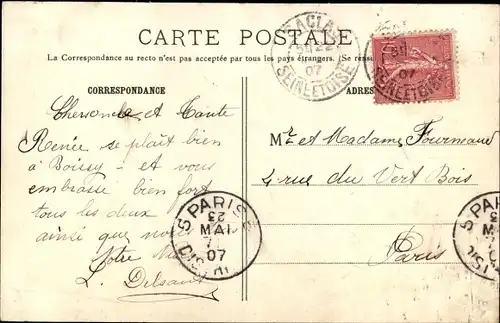 CARTE POSTALE
La Correspondance au recto n'est pas acceptée par tous les pays étrangers. (Se
CORRESPONDANCE
Cher oncle et Tante
Renée se plaît bien
à Boissy et vous
embrasse bien fort
tous les deux
ainsi que nous
Votre
L.
ADRES
Mr et Madame Fourneaux
4 rue du Vert Bois
Paris
22
07
SEINE ET OISE
07
SEINE ET OISE
PARIS
23
MAI
07
DISTRI
5 PAR
23
MA
07
DIS